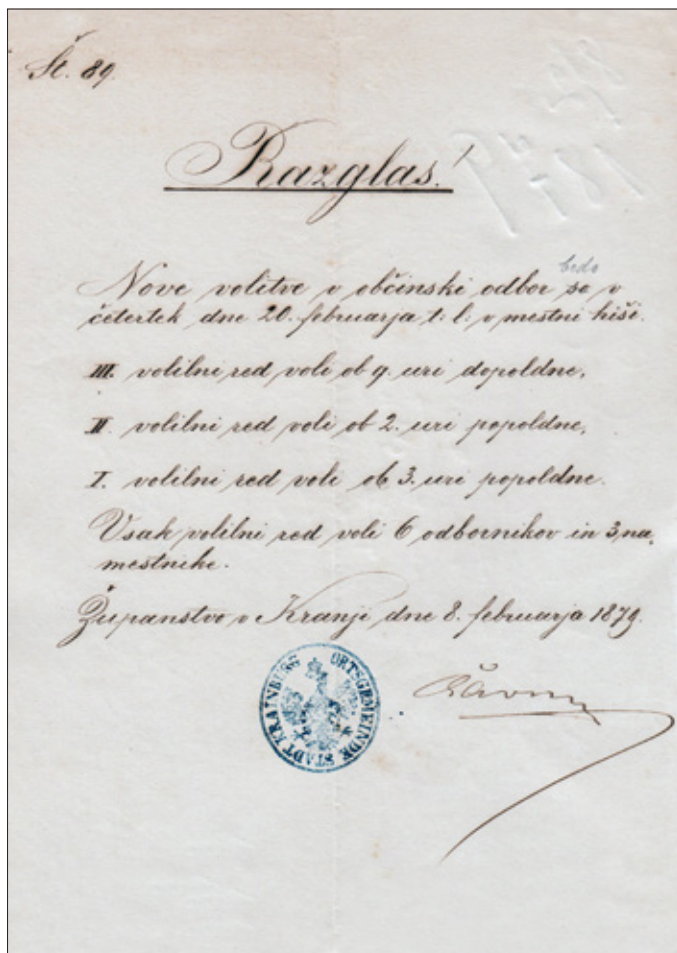 Št. 89.
Razglas!
bodo
Nove volitve v občinski odbor so v
četertek dne 20. februarja t. l. v mestni hiši.
III. volilni red voli ob 9. uri dopoldne,
II. volilni red voli ob 2. uri popoldne,
I. volilni red voli ob 3. uri popoldne.
Vsak volilni red voli 6 odbornikov in 3 na,
mestnike.
Županstvo v Kranji dne 8. februarja 1879.
ORTSGEMEINDE STADT KRAINBURG